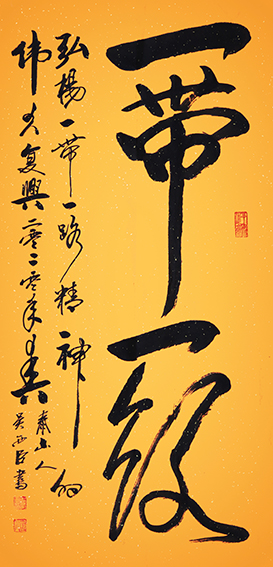 一带一路
弘楊一带一路精神的
伟大复興二零二零年
泰山人
吴西臣書